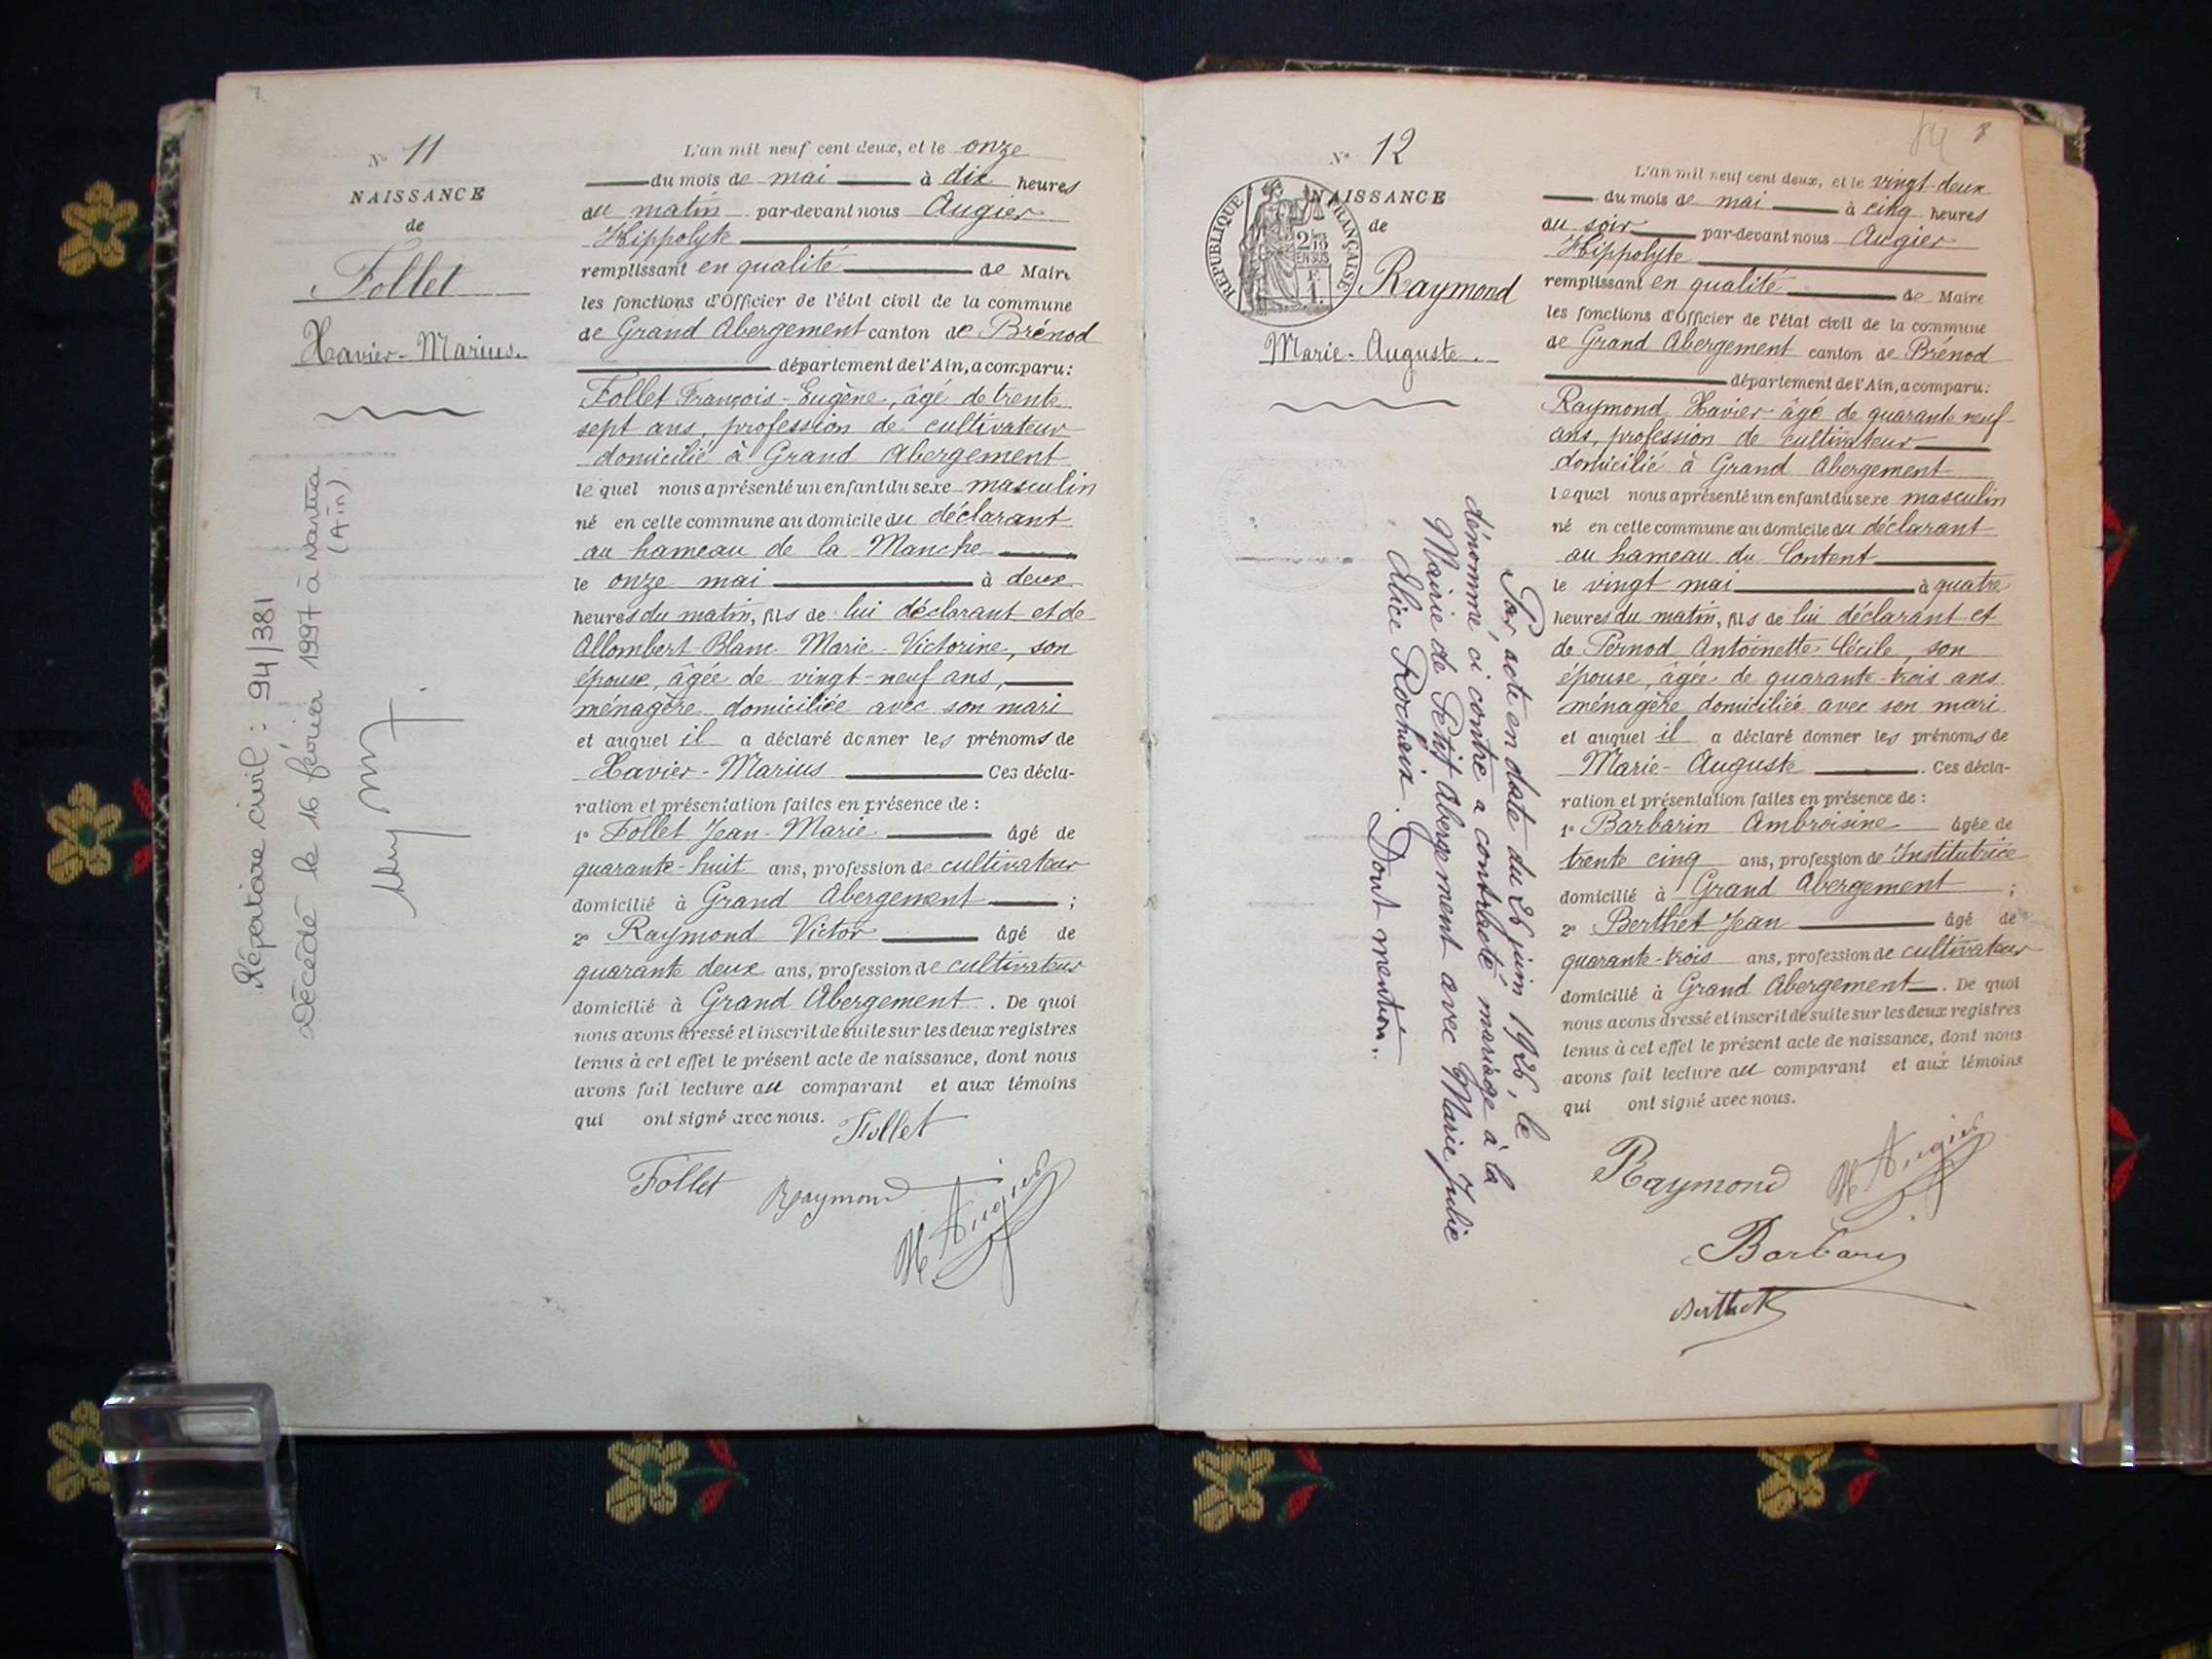 7
N° 11
NAISSANCE
de
Follet
Xavier-Marius.
Répertoire civil : 94/381
Décédé le 16 février 1997 à Nantua
(Ain)
L'an mil neuf cent deux, et le onze
du mois de mai à dix heures
du matin par-devant nous Augier
Hippolyte
remplissant en qualité de Maire
les fonctions d'Officier de l'état civil de la commune
de Grand Abergement canton de Brénod
département de l'Ain, a comparu :
Follet François-Eugène, âgé de trente
sept ans, profession de cultivateur
domicilié à Grand Abergement
lequel nous a présenté un enfant du sexe masculin
né en cette commune au domicile du déclarant
au hameau de la Manche
le onze mai à deux
heures du matin, fils de lui déclarant et de
Allombert-Blanc Marie-Victorine, son
épouse, âgée de vingt-neuf ans,
ménagère domiciliée avec son mari
et auquel il a déclaré donner les prénoms de
Xavier-Marius Ces décla-
ration et présentation faites en présence de :
1° Follet Jean-Marie âgé de
quarante-huit ans, profession de cultivateur
domicilié à Grand Abergement ;
2° Raymond Victor âgé de
quarante deux ans, profession de cultivateur
domicilié à Grand Abergement. De quoi
nous avons dressé et inscrit de suite sur les deux registres
tenus à cet effet le présent acte de naissance, dont nous
avons fait lecture au comparant et aux témoins
qui ont signé avec nous. Follet
Follet Raymond
H Augier
8
N° 12
NAISSANCE
de
RÉPUBLIQUE FRANÇAISE
2/10
EN SUS
F.
1.
Raymond
Marie-Auguste.
Par acte en date du 26 juin 1926, le
dénommé ci contre a contracté mariage à la
Mairie de Petit Abergement avec Marie Julie
Alice Rochaix. Dont mention.
L'an mil neuf cent deux, et le vingt-deux
du mois de mai à cinq heures
du soir par-devant nous Augier
Hippolyte
remplissant en qualité de Maire
les fonctions d'Officier de l'état civil de la commune
de Grand Abergement canton de Brénod
département de l'Ain, a comparu :
Raymond Xavier âgé de quarante neuf
ans, profession de cultivateur
domicilié à Grand Abergement
lequel nous a présenté un enfant du sexe masculin
né en cette commune au domicile du déclarant
au hameau du Content
le vingt mai à quatre
heures du matin, fils de lui déclarant et
de Pernod Antoinette Cécile, son
épouse, âgée de quarante-trois ans
ménagère domiciliée avec son mari
et auquel il a déclaré donner les prénoms de
Marie-Auguste. Ces décla-
ration et présentation faites en présence de :
1° Barbarin Ambroisine âgée de
trente cinq ans, profession de Institutrice
domicilié à Grand Abergement ;
2° Berthet Jean âgé de
quarante-trois ans, profession de cultivateur
domicilié à Grand Abergement. De quoi
nous avons dressé et inscrit de suite sur les deux registres
tenus à cet effet le présent acte de naissance, dont nous
avons fait lecture au comparant et aux témoins
qui ont signé avec nous.
Raymond H Augier
Barbarin
Berthet